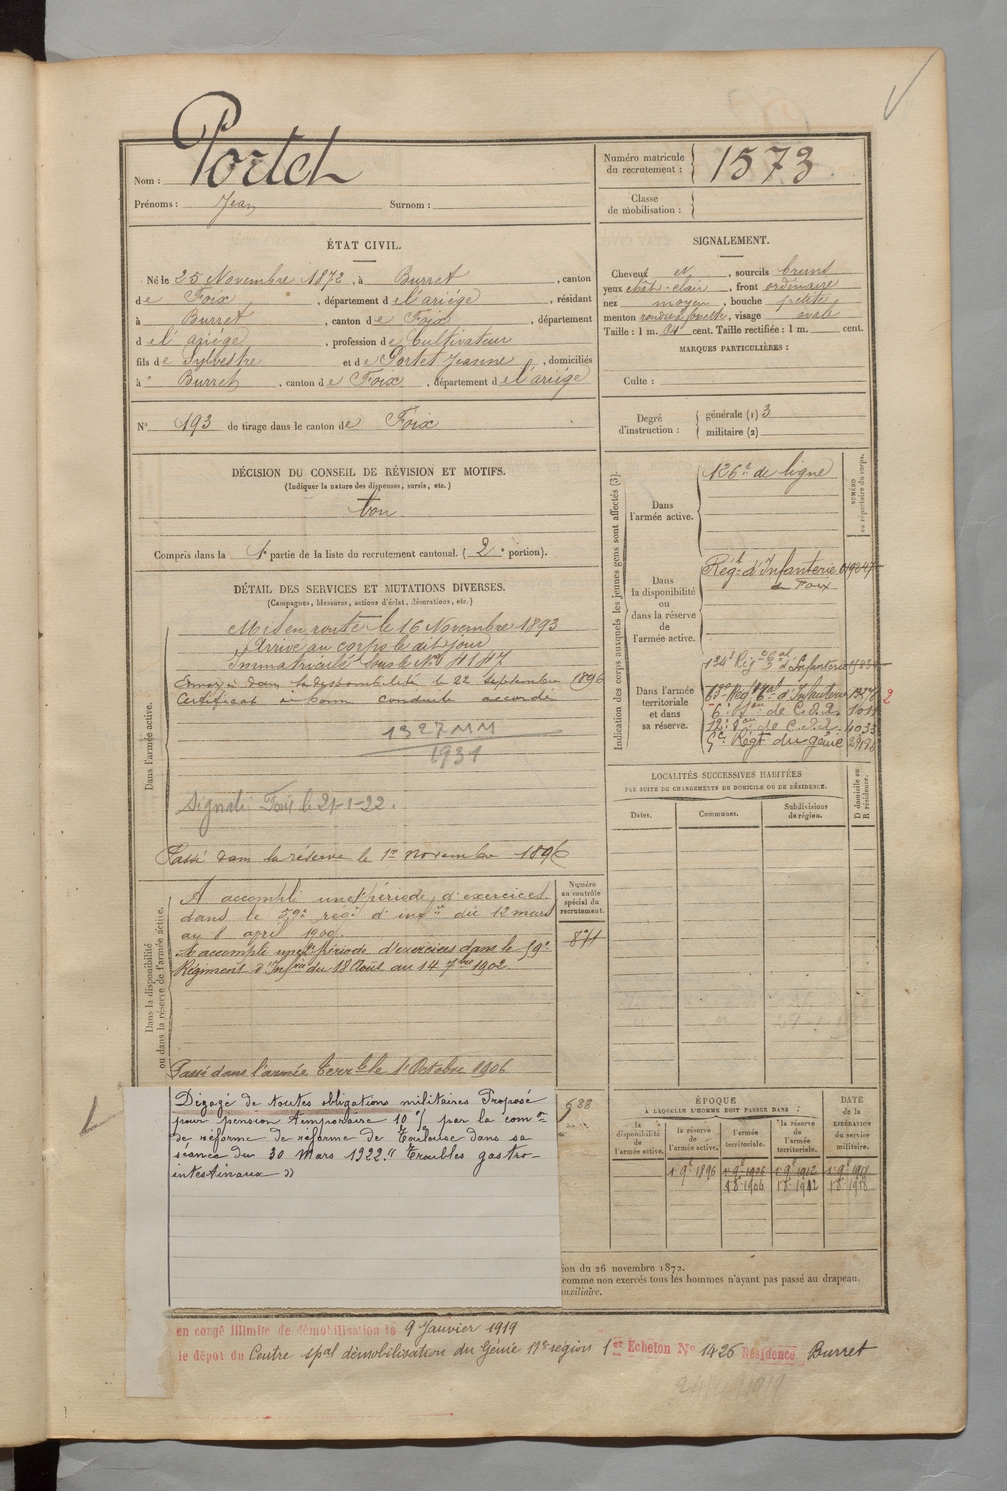 Nom : Portet
Prénoms : Jean Surnom :
Numéro matricule du recrutement : 1573
Classe de mobilisation :
ÉTAT CIVIL.
Né le 25 Novembre 1872, à Burret, canton
de Foix, département de l'ariége, résidant
à Burret, canton de Foix, département
de l'ariége, profession de Cultivateur
fils de Sylvestre et de Portet Jeanne, domiciliés
à Burret, canton de Foix, département de l'ariége
N° 193 de tirage dans le canton de Foix
SIGNALEMENT.
Cheveux et, sourcils bruns
yeux chât-clair, front ordinaire
nez moyen, bouche petite
menton rond à fossette, visage ovale
Taille : 1 m. cent. Taille rectifiée : 1 m. cent.
MARQUES PARTICULIÈRES :
Culte :
Degré d'instruction : générale (1) 3
militaire (2)
DÉCISION DU CONSEIL DE RÉVISION ET MOTIFS.
(Indiquer la nature des dispenses, sursis, etc.)
bon
Compris dans la 1e partie de la liste du recrutement cantonal. (2e portion).
DÉTAIL DES SERVICES ET MUTATIONS DIVERSES.
(Campagnes, blessures, actions d'éclat, décorations, etc.)
Dans l'armée active.
Mis en route le 16 Novembre 1893
Arrivé au corps le dit jour
Immatriculé sous le No 4147
Envoyé dans la disponibilité le 22 Septembre 1896
Certificat de bonne conduite accordé
1327 MM
1931
Signalé Foix le 21-1-22.
Passé dans la réserve le 1er novembre 1896
Dans la disponibilité ou dans la réserve de l'armée active.
A accompli une 1e période d'exercices
dans le 59e régt d'infie du 12 mars
au 8 april 1900
A accompli une 2e période d'exercices dans le 59e
Régiment d'Infrie du 18 Août au 14 7bre 1902.
Passé dans l'armée Terrle le 1er Octobre 1906
Numéro au contrôle spécial du recrutement.
871
588
Dégagé de toutes obligations militaires Proposé
pour pension temporaire 10 % par la comon
de réforme de réforme de Toulouse dans sa
séance du 30 Mars 1922. "Troubles gastro-
intestinaux"
Indication des corps auxquels les jeunes gens sont affectés (3).
NUMÉRO au répertoire du corps.
Dans l'armée active. 126e de ligne
Dans la disponibilité ou dans la réserve de l'armée active. Régt d'Infanterie
de Foix
Dans l'armée territoriale et dans sa réserve.
134e Régt d'Infanterie
6e Bon de C.d.d.
12e Bon de C.d.d. 4033
Régt du génie
LOCALITÉS SUCCESSIVES HABITÉES
PAR SUITE DE CHANGEMENTS DE DOMICILE OU DE RÉSIDENCE.
Dates. Communes. Subdivisions de région. D domicile ou R résidence.
ÉPOQUE
À LAQUELLE L'HOMME DOIT PASSER DANS :
la disponibilité de l'armée active. la réserve de l'armée active. l'armée territoriale. la réserve de l'armée territoriale.
DATE de la LIBÉRATION du service militaire.
1 9e 1896 1 9e 1906 1 9e 1912 1 9e 1918
1 8e 1906 1 8e 1912 1 8e 1918
ion du 26 novembre 1872.
comme non exercés tous les hommes n'ayant pas passé au drapeau.
auxiliaire.
en congé illimité de démobilisation le 9 Janvier 1919
le dépôt du Centre spal démobilisation du Génie 17e région 1er Echelon N° 1426 Résidence Burret